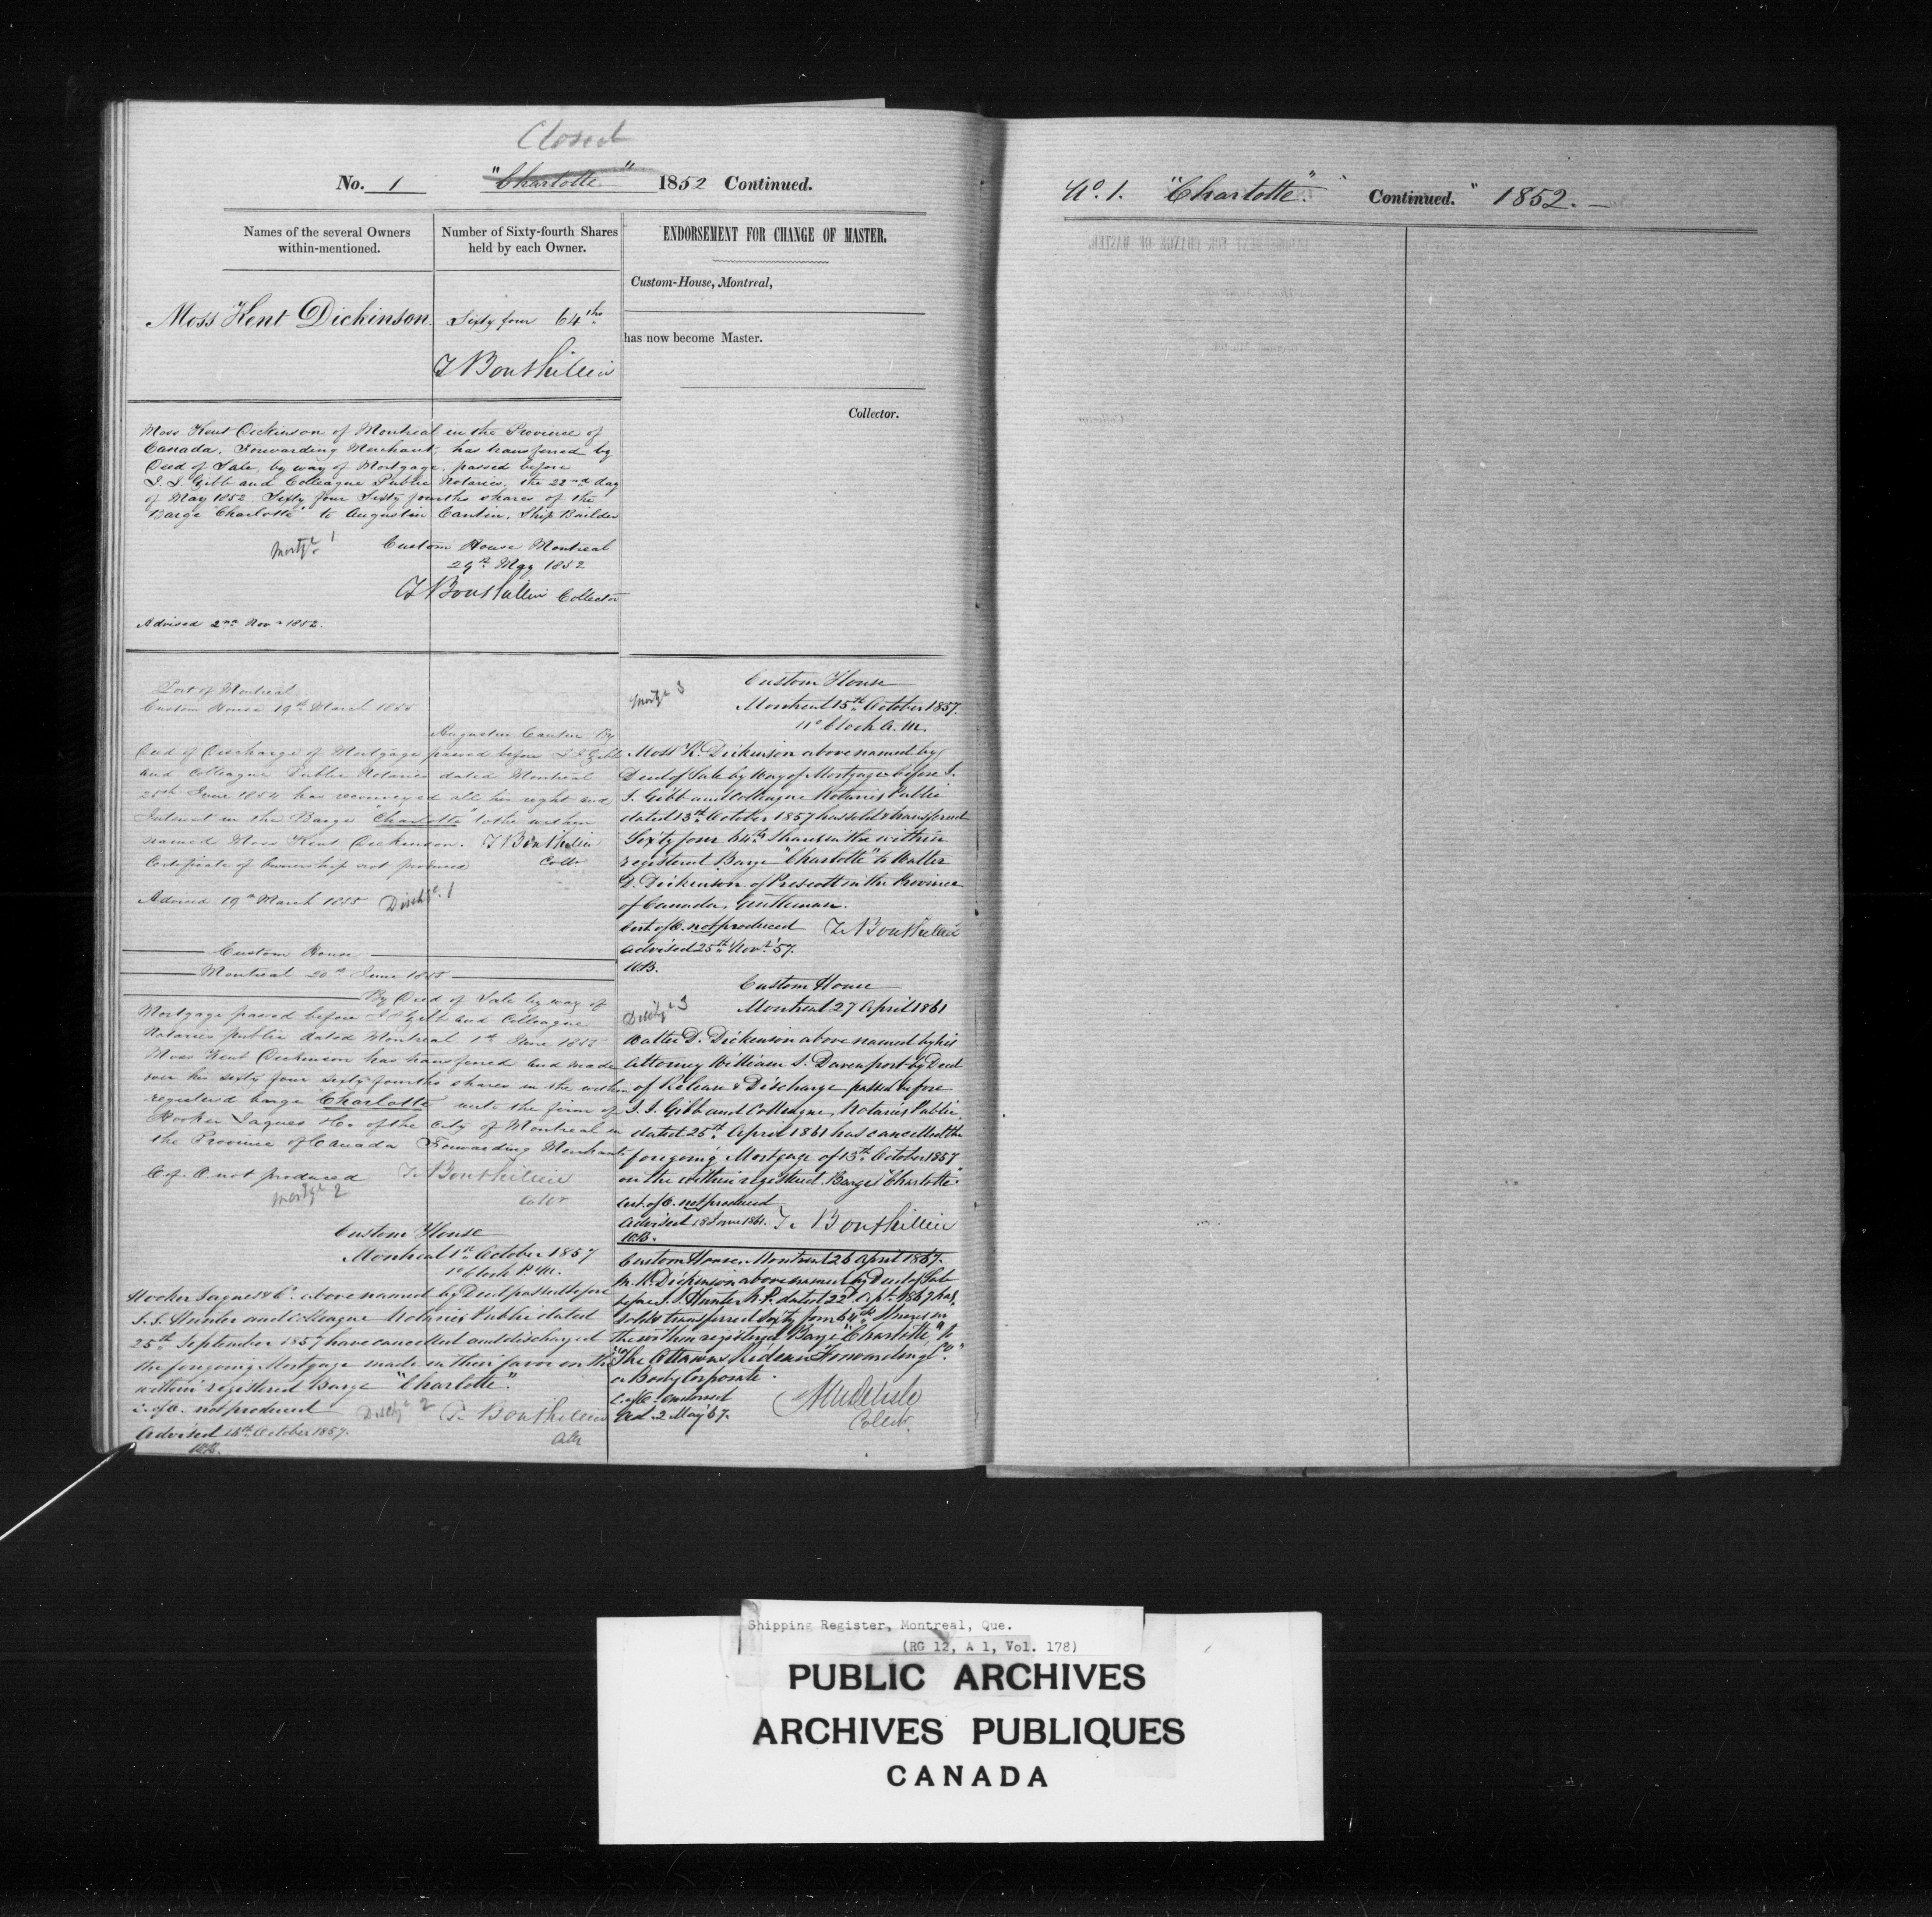 Closed
No. 1 "Charlotte" 1852 Continued.
Names of the several Owners within-mentioned.
Number of Sixty-fourth Shares held by each Owner.
Moss Kent Dickinson Sixty four 64ths
T Bouthillier
Moss Kent Dickinson of Montreal in the Province of
Canada, Forwarding Merchant, has transferred by
Deed of Sale, by way of Mortgage, passed before
I. J. Gibb and Colleague Public Notaries, the 22nd day
of May 1852 Sixty four Sixty fourths shares of the
Barge "Charlotte" to Augustin Cantin, Ship Builder
Mortge 1
Custom House Montreal
29th May 1852
T Bouthillier Collector
Advised 2nd Nov 1852.
Port of Montreal
Custom House 19th March 1855
Augustin Cantin By
Deed of Discharge of Mortgage passed before I J Gibb
and Colleague Public Notaries dated Montreal
28th June 1854 has reconveyed all his right and
Interest in the Barge "Charlotte" to the within
named Moss Kent Dickinson. T Bouthillier
Certificate of Ownership not produced Collr
Advised 19th March 1855 Dischge. 1
Custom House
Montreal 20th June 1855
By Deed of Sale by way of
Mortgage passed before I J Gibb and Colleague
Notaries public dated Montreal 1st June 1855
Moss Kent Dickinson has transferred and made
over his sixty four sixty fourths shares in the within
registered barge Charlotte unto the firm of
Hooker Jaques & Co. of the City of Montreal in
the Province of Canada Forwarding Merchants
C of O not produced T. Bouthillier
Mortge 2 Collr
Custom House
Montreal 1st October 1857
1 o'clock P.M.
Hooker Jaques & Co. above named by Deed passed before
J. S. Hunter and Colleague Notaries Public dated
25th September 1857 have cancelled and discharged
the foregoing Mortgage made in their favor on the
within registered Barge "Charlotte".
C. of O. not produced Dischge 2 T. Bouthillier
Advised 16th October 1857. Collr
W.B.
ENDORSEMENT FOR CHANGE OF MASTER.
Custom-House, Montreal,
has now become Master.
Collector.
Mortge 3
Custom House
Montreal 15th October 1857.
11 o'clock A.M.
Moss K. Dickinson above named by
Deed of Sale by Way of Mortgage before I.
J. Gibb and Colleague Notaries Public
dated 13th October 1857 has sold & transferred
Sixty four 64th Shares in the within
registered Barge "Charlotte" to Walter
D. Dickinson of Prescott in the Province
of Canada, Gentleman.
Cert. of O. not produced T. Bouthillier
Advised 25th Nov. '57.
W.B.
Custom House
Dischge 3 Montreal 27 April 1861
Walter D. Dickinson above named by his
Attorney William S. Davenport by Deed
of Release & Discharge passed before
I. J. Gibb and Colleague, Notaries Public,
dated 25th April 1861 has cancelled the
foregoing Mortgage of 13th October 1857
on the within registered Barge "Charlotte"
Cert. of O. not produced
Advised 18 June 1861. T. Bouthillier
W.B.
Custom House, Montreal 26 April 1867.
M. K. Dickinson above named by Deed of Sale
before J. S. Hunter N.P. dated 22d 1867 has
sold & transferred Sixty four 64th Shares in
the within registered Barge "Charlotte" to
"The Ottawa & Rideau Forwarding Co."
a Body Corporate.
C. of O. endorsed
Ad. 2 May '67.
Collr.
No. 1. "Charlotte". Continued." 1852.
Shipping Register, Montreal, Que.
(RG 12, A 1, Vol. 178)
PUBLIC ARCHIVES
ARCHIVES PUBLIQUES
CANADA